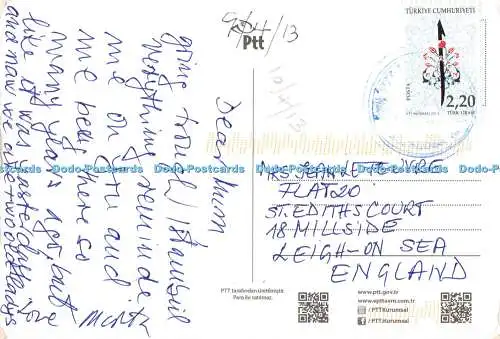 9/4/13
Ptt
10/4/13
TÜRKİYE CUMHURİYETİ
POSTA
2,20
TÜRK LİRASI
Dear Mum
going round Istanbul
everything reminds
me of you and
me being here so
many years ago but
like it was yesterday
and now we are two old ladys
Love
MRS JEAN
FLAT 20
ST. EDITHS COURT
18 MILLSIDE
LEIGH-ON SEA
ENGLAND
PTT tarafından üretilmiştir.
Para ile satılmaz.
www.ptt.gov.tr
www.epttavm.com.tr
/PTTKurumsal
/PTTKurumsal
Dodo-Postcards Dodo-Postcards Dodo-Postcards Dodo-Postcards Dodo-Postcards Dodo-Postcards